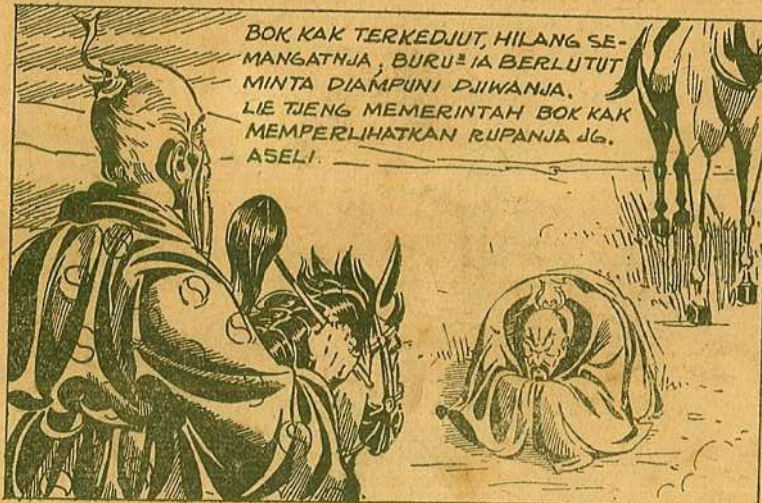 BOK KAK TERKEDJUT, HILANG SE-
MANGATNJA; BURU² IA BERLUTUT
MINTA DIAMPUNI DJIWANJA.
LIE TJENG MEMERINTAH BOK KAK
MEMPERLIHATKAN RUPANJA JG.
ASELI.